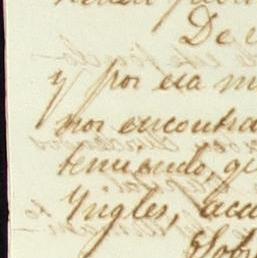 De
y por esa m
nos encontra
tenuando, qu
Yngles, aca
Sob